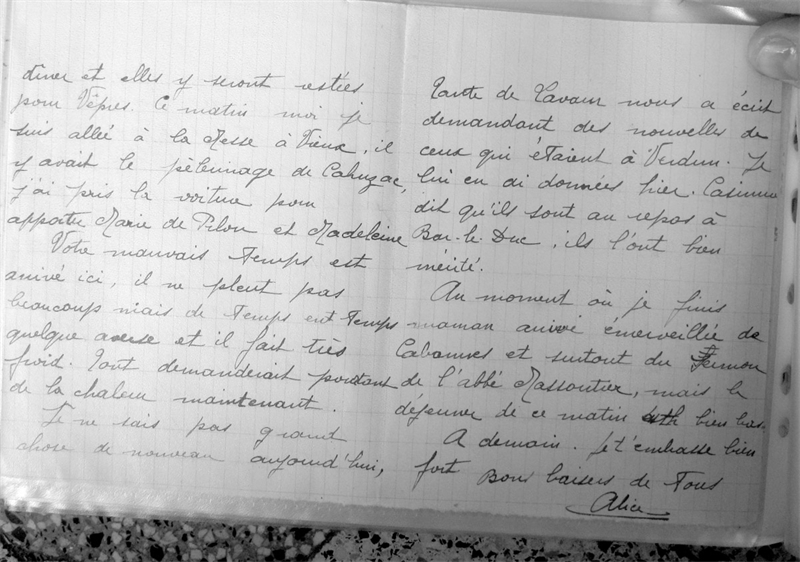 dîner et elles y seront restées
pour Vêpres. Ce matin moi je
suis allée à la Messe à Vieux, il
y avait le pèlerinage de Cahuzac,
j'ai pris la voiture pour
apporter Marie de Pilou et Madeleine
Votre mauvais temps est
arrivé ici, il ne pleut pas
beaucoup mais de temps en temps
quelque averse et il fait très
froid. Tout demanderait pourtant
de la chaleur maintenant.
Je ne sais pas grand
chose de nouveau aujourd'hui,
Tante de Lavaur nous a écrit
demandant des nouvelles de
ceux qui étaient à Verdun. Je
lui en ai données hier. Casimir
dit qu'ils sont au repos à
Bar-le-Duc, ils l'ont bien
mérité.
Au moment où je finis
maman arrive émerveillée de
Cabannes et surtout du Sermon
de l'abbé Massoutier, mais le
déjeuner de ce matin bien bas.
A demain. Je t'embrasse bien
fort Bons baisers de tous
Alice